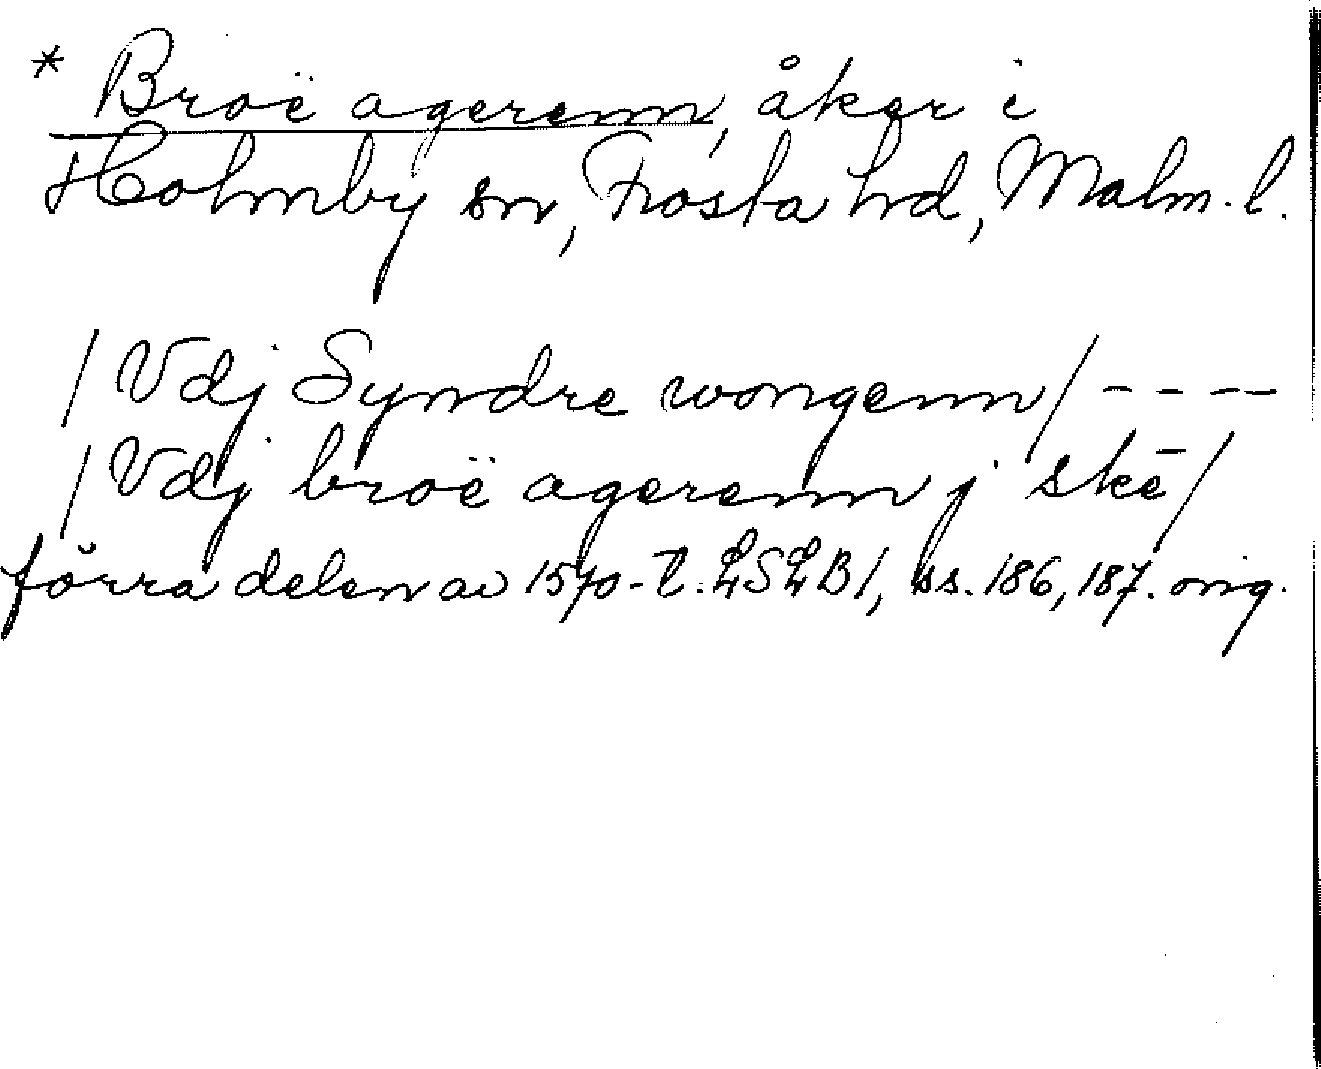 * Broë agerenn, åker i
Holmby sn, Frosta hd, Malm. l.
/ Vdj Syndre wongenn / - - - -
/ Vdj broë agerenn j skē /
förra delen av 1570-t. LSLB1, ss. 186, 187. orig.